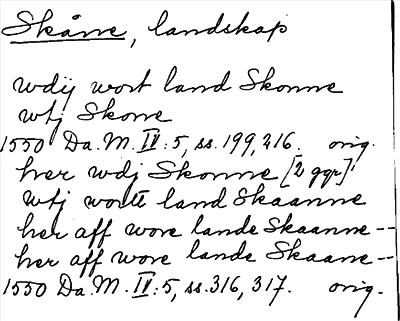 Skåne, landskap
wdij wort land Skonne
wtj Skone
1550 Da.M. IV:5, ss. 199, 216. orig.
her wdj Skonne [2 ggr]
wtj wortt land Skaanne
her aff wore lande Skaanne--
her aff wore lande Skaane--
1550 Da.M. IV:5, ss. 316, 317. orig.